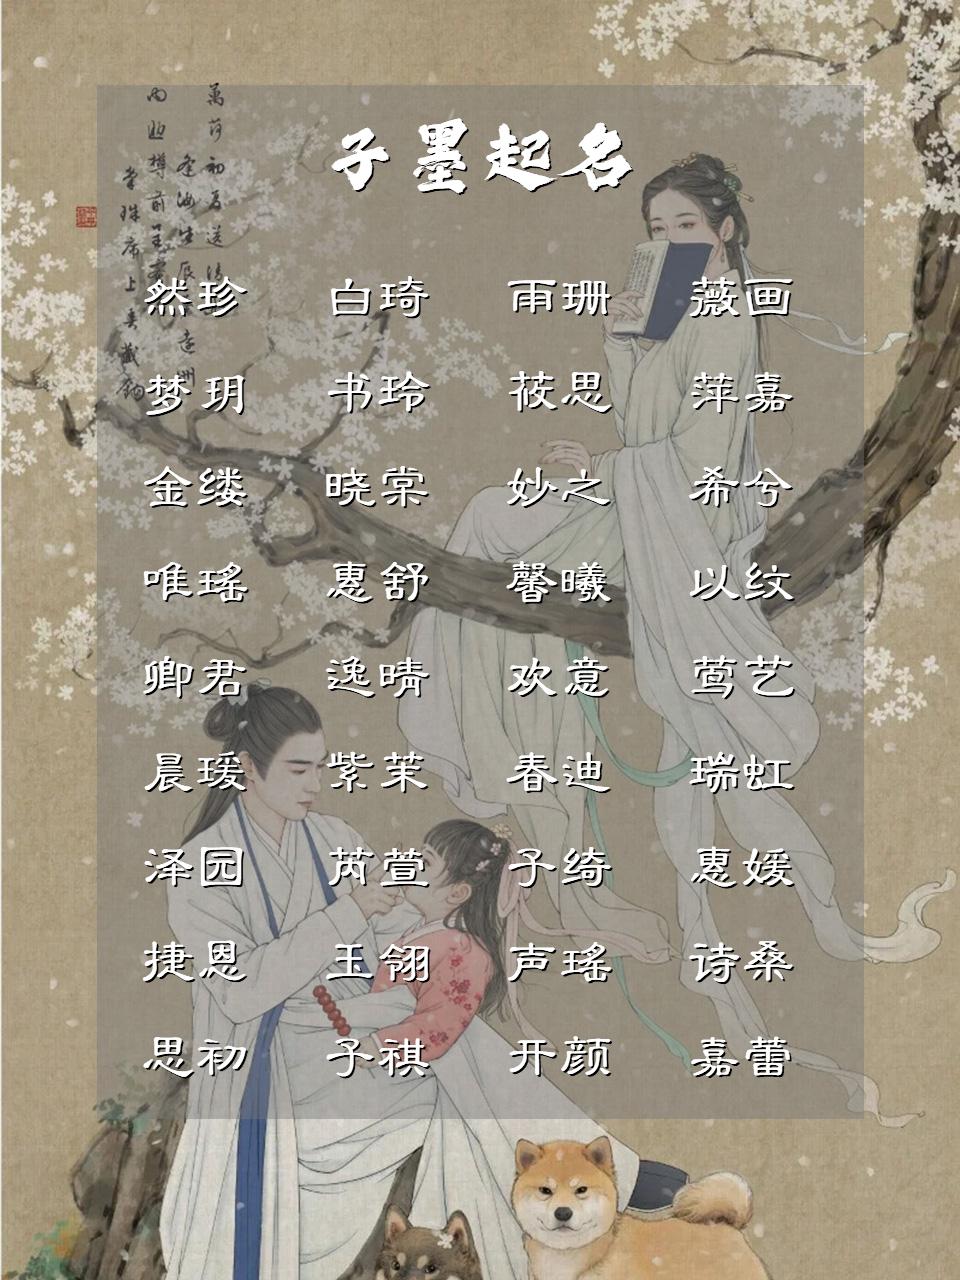 子墨起名
然珍 白琦 雨珊 薇画
梦玥 书玲 莜思 萍嘉
金缕 晓棠 妙之 希兮
唯瑶 惠舒 馨曦 以纹
卿君 逸晴 欢意 莺艺
晨瑗 紫茉 春迪 瑞虹
泽园 芮萱 子绮 惠媛
捷恩 玉翎 声瑶 诗桑
思初 子祺 开颜 嘉蕾